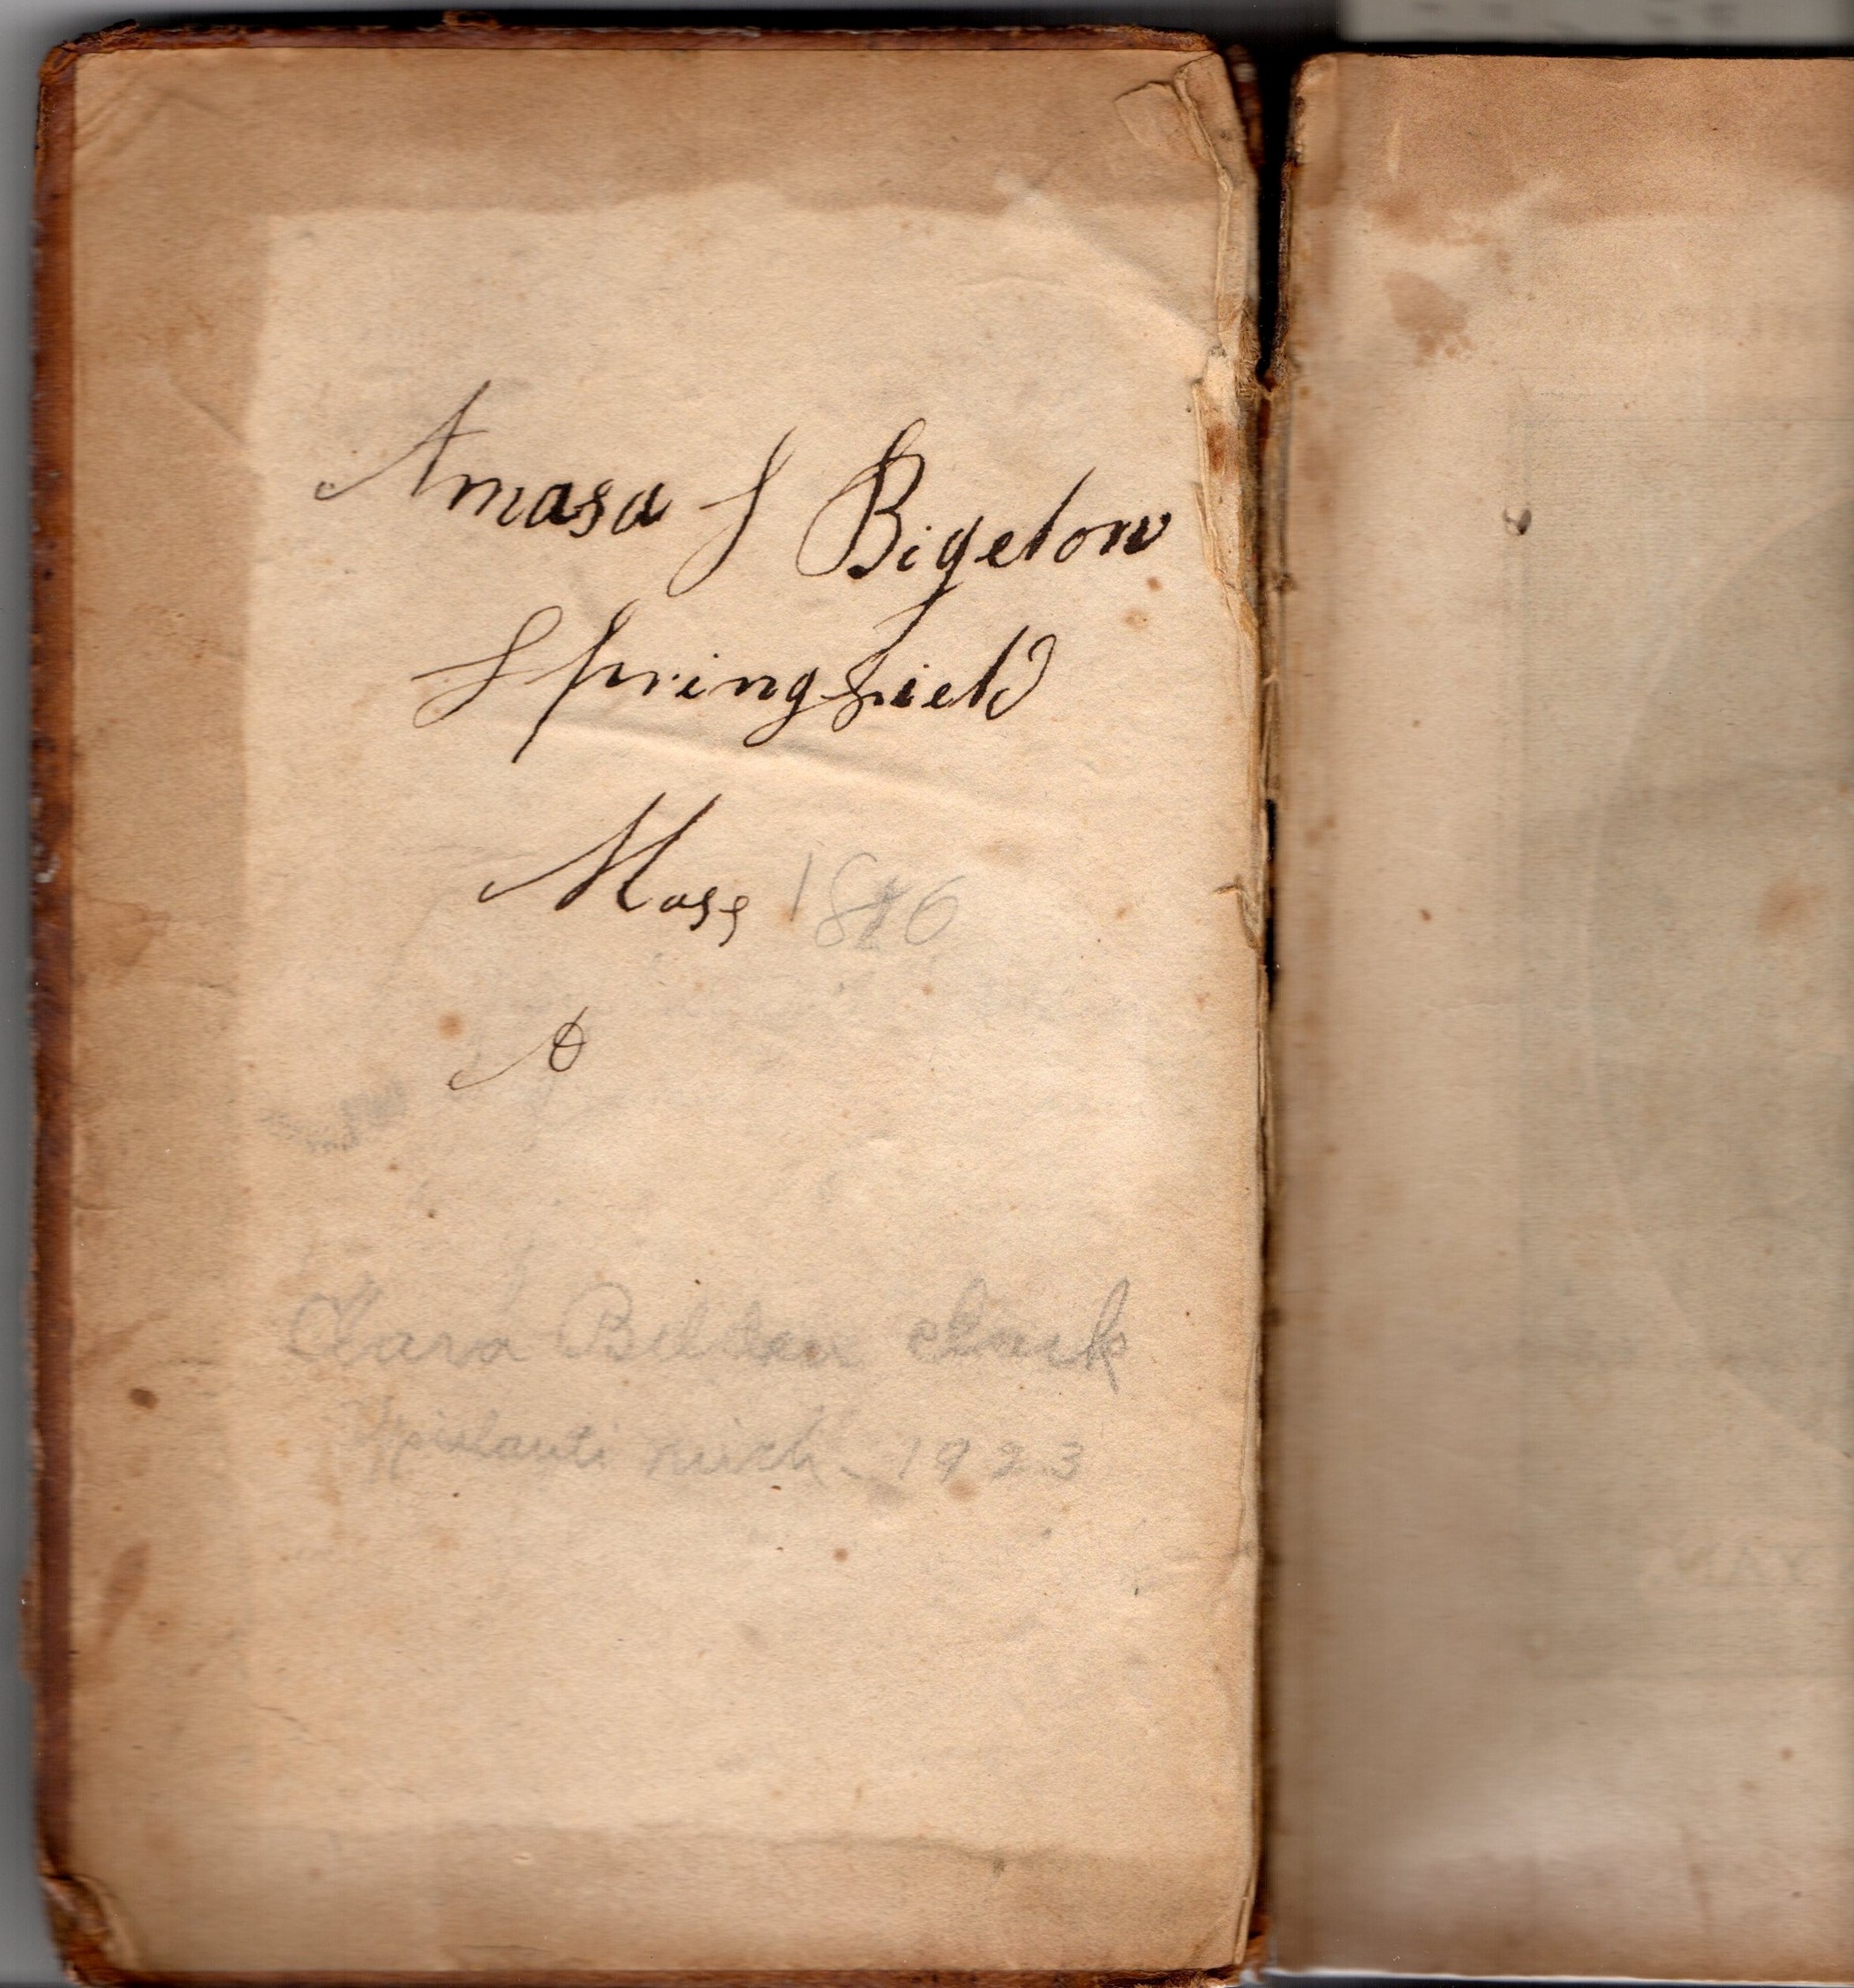 Amasa S Bigelow
Springfield
Mass
A
Clara Belden Clark
Ypsilanti Mich - 1923